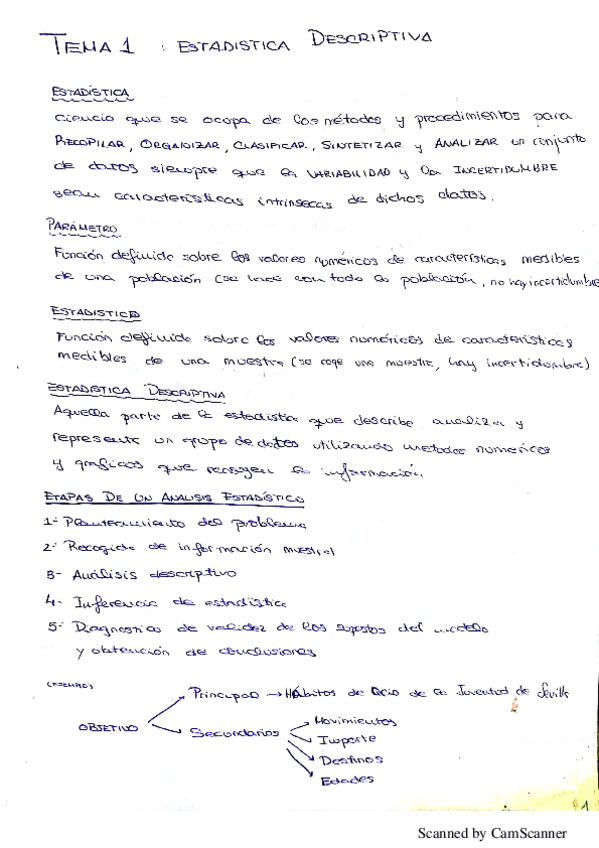 TEMA 1 : ESTADISTICA DESCRIPTIVA
ESTADÍSTICA
Ciencia que se ocupa de los métodos y procedimientos para
RECOPILAR, ORGANIZAR, CLASIFICAR, SINTETIZAR y ANALIZAR un conjunto
de datos siempre que la VARIABILIDAD y la INCERTIDUMBRE
sean características intrínsecas de dichos datos.
PARÁMETRO
Función definida sobre los valores numéricos de características medibles
de una población (se hace con toda la población, no hay incertidumbre
ESTADISTICO
Función definida sobre los valores numéricos de características
medibles de una muestra (se coge una muestra, hay incertidumbre)
ESTADISTICA DESCRIPTIVA
Aquella parte de la estadistia que describe analiza y
representa un grupo de datos utilizando metodos numericos
y graficos que recogen la información.
ETAPAS DE UN ANALISIS ESTADÍSTICO
1- Planteamiento del problema
2- Recogida de información muestral
3- Análisis descriptivo
4- Inferencia de estadistica
5- Diagnostico de validez de los supestos del modelo
y obtención de conclusiones
(EJEMPLO)
Principal → Hábitos de Ocio de la Juventud de Sevilla
OBJETIVO
Secundarios
Movimientos
Importe
Destinos
Edades
1
Scanned by CamScanner